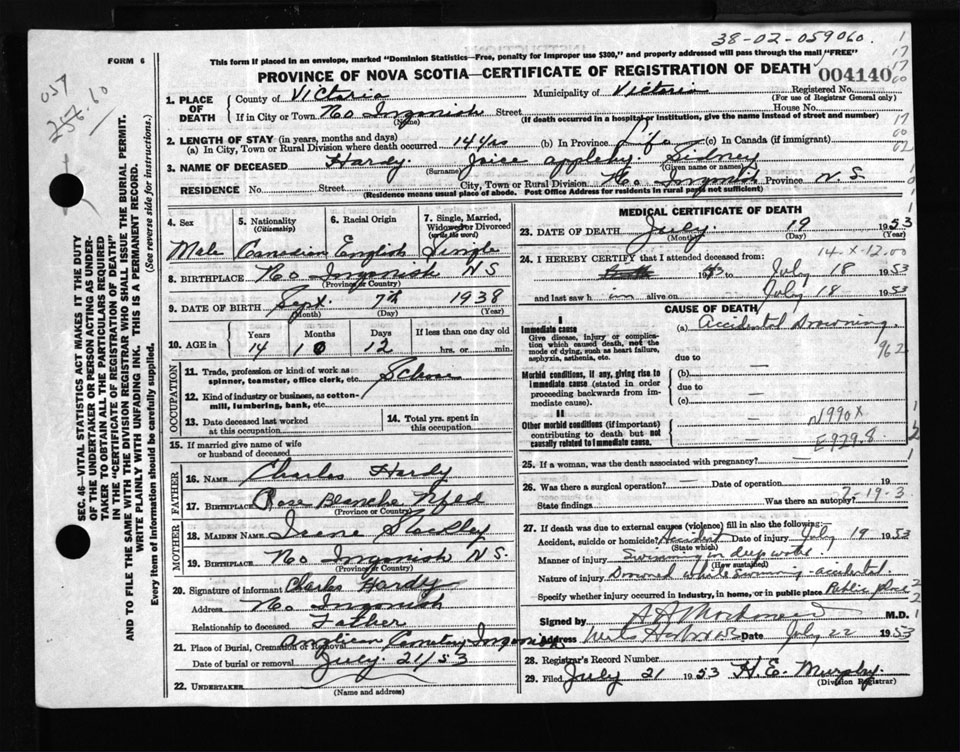 38-02-059060
FORM 6
This form if placed in an envelope, marked "Dominion Statistics—Free, penalty for improper use $300," and properly addressed will pass through the mail "FREE"
PROVINCE OF NOVA SCOTIA—CERTIFICATE OF REGISTRATION OF DEATH
004140
1. PLACE OF DEATH
County of Victoria Municipality of Victoria Registered No.
(For use of Registrar General only)
If in City or Town No Ingonish Street House No.
(Name) (If death occurred in a hospital or institution, give the name instead of street and number)
2. LENGTH OF STAY (in years, months and days)
(a) In City, Town or Rural Division where death occurred 14 yrs (b) In Province Life (c) In Canada (if immigrant)
3. NAME OF DECEASED Hardy. Joice appleby. Sidney
(Surname) (Given name or names)
RESIDENCE No. Street City, Town or Rural Division No Ingonish Province N.S.
(Residence means usual place of abode. Post Office Address for residents in rural parts not sufficient)
SEC. 46—VITAL STATISTICS ACT MAKES IT THE DUTY
OF THE UNDERTAKER OR PERSON ACTING AS UNDER-
TAKER TO OBTAIN ALL THE PARTICULARS REQUIRED
IN THE "CERTIFICATE OF REGISTRATION OF DEATH"
AND TO FILE THE SAME WITH THE DIVISION REGISTRAR WHO SHALL ISSUE THE BURIAL PERMIT.
WRITE PLAINLY WITH UNFADING INK. THIS IS A PERMANENT RECORD.
Every item of information should be carefully supplied. (See reverse side for instructions.)
4. Sex Male
5. Nationality (Citizenship) Canadian
6. Racial Origin English
7. Single, Married, Widowed or Divorced (write the word) Single
8. BIRTHPLACE No Ingonish N S
(Province or Country)
9. DATE OF BIRTH Sept. 7th 1938
(Month) (Day) (Year)
10. AGE in Years Months Days If less than one day old
14 10 12 hrs. or min.
OCCUPATION
11. Trade, profession or kind of work as
spinner, teamster, office clerk, etc.
12. Kind of industry or business, as cotton-
mill, lumbering, bank, etc.
13. Date deceased last worked
at this occupation
14. Total yrs. spent in
this occupation
15. If married give name of wife
or husband of deceased
FATHER
16. NAME Charles Hardy
17. BIRTHPLACE Rose Blanche Nfld
(Province or Country)
MOTHER
18. MAIDEN NAME Irene
19. BIRTHPLACE No Ingonish N S.
(Province or Country)
20. Signature of informant Charles Hardy
Address No Ingonish
Relationship to deceased Father
21. Place of Burial, Cremation or Removal Anglican Cemetery Ingonish
Date of burial or removal July. 21/53
22. UNDERTAKER
(Name and address)
MEDICAL CERTIFICATE OF DEATH
23. DATE OF DEATH July. 19 1953
(Month) (Day) (Year)
14 x-12.00
24. I HEREBY CERTIFY that I attended deceased from:
1953 to July 18 1953
and last saw h im alive on July 18 1953
CAUSE OF DEATH
I
Immediate cause
Give disease, injury or complica-
tion which caused death, not the
mode of dying, such as heart failure,
asphyxia, asthenia, etc.
(a) Accidental Drowning.
962
due to
Morbid conditions, if any, giving rise to
immediate cause (stated in order
proceeding backwards from im-
mediate cause).
(b) —
due to
(c) —
II
Other morbid conditions (if important)
contributing to death but not
causally related to immediate cause.
N990X
E929.8
25. If a woman, was the death associated with pregnancy? —
26. Was there a surgical operation? — Date of operation 19
State findings Was there an autopsy?
7-19-3
27. If death was due to external causes (violence) fill in also the following:
Accident, suicide or homicide? Accident Date of injury July 19 1953
(State which)
Manner of injury Swimming in deep water
(How sustained)
Nature of injury Drowned while swimming - accidental.
Specify whether injury occurred in industry, in home, or in public place Public place
Signed by M.D.
Address Date July 22 1953
28. Registrar's Record Number
29. Filed July 21 1953 H. E. Murphy.
(Division Registrar)